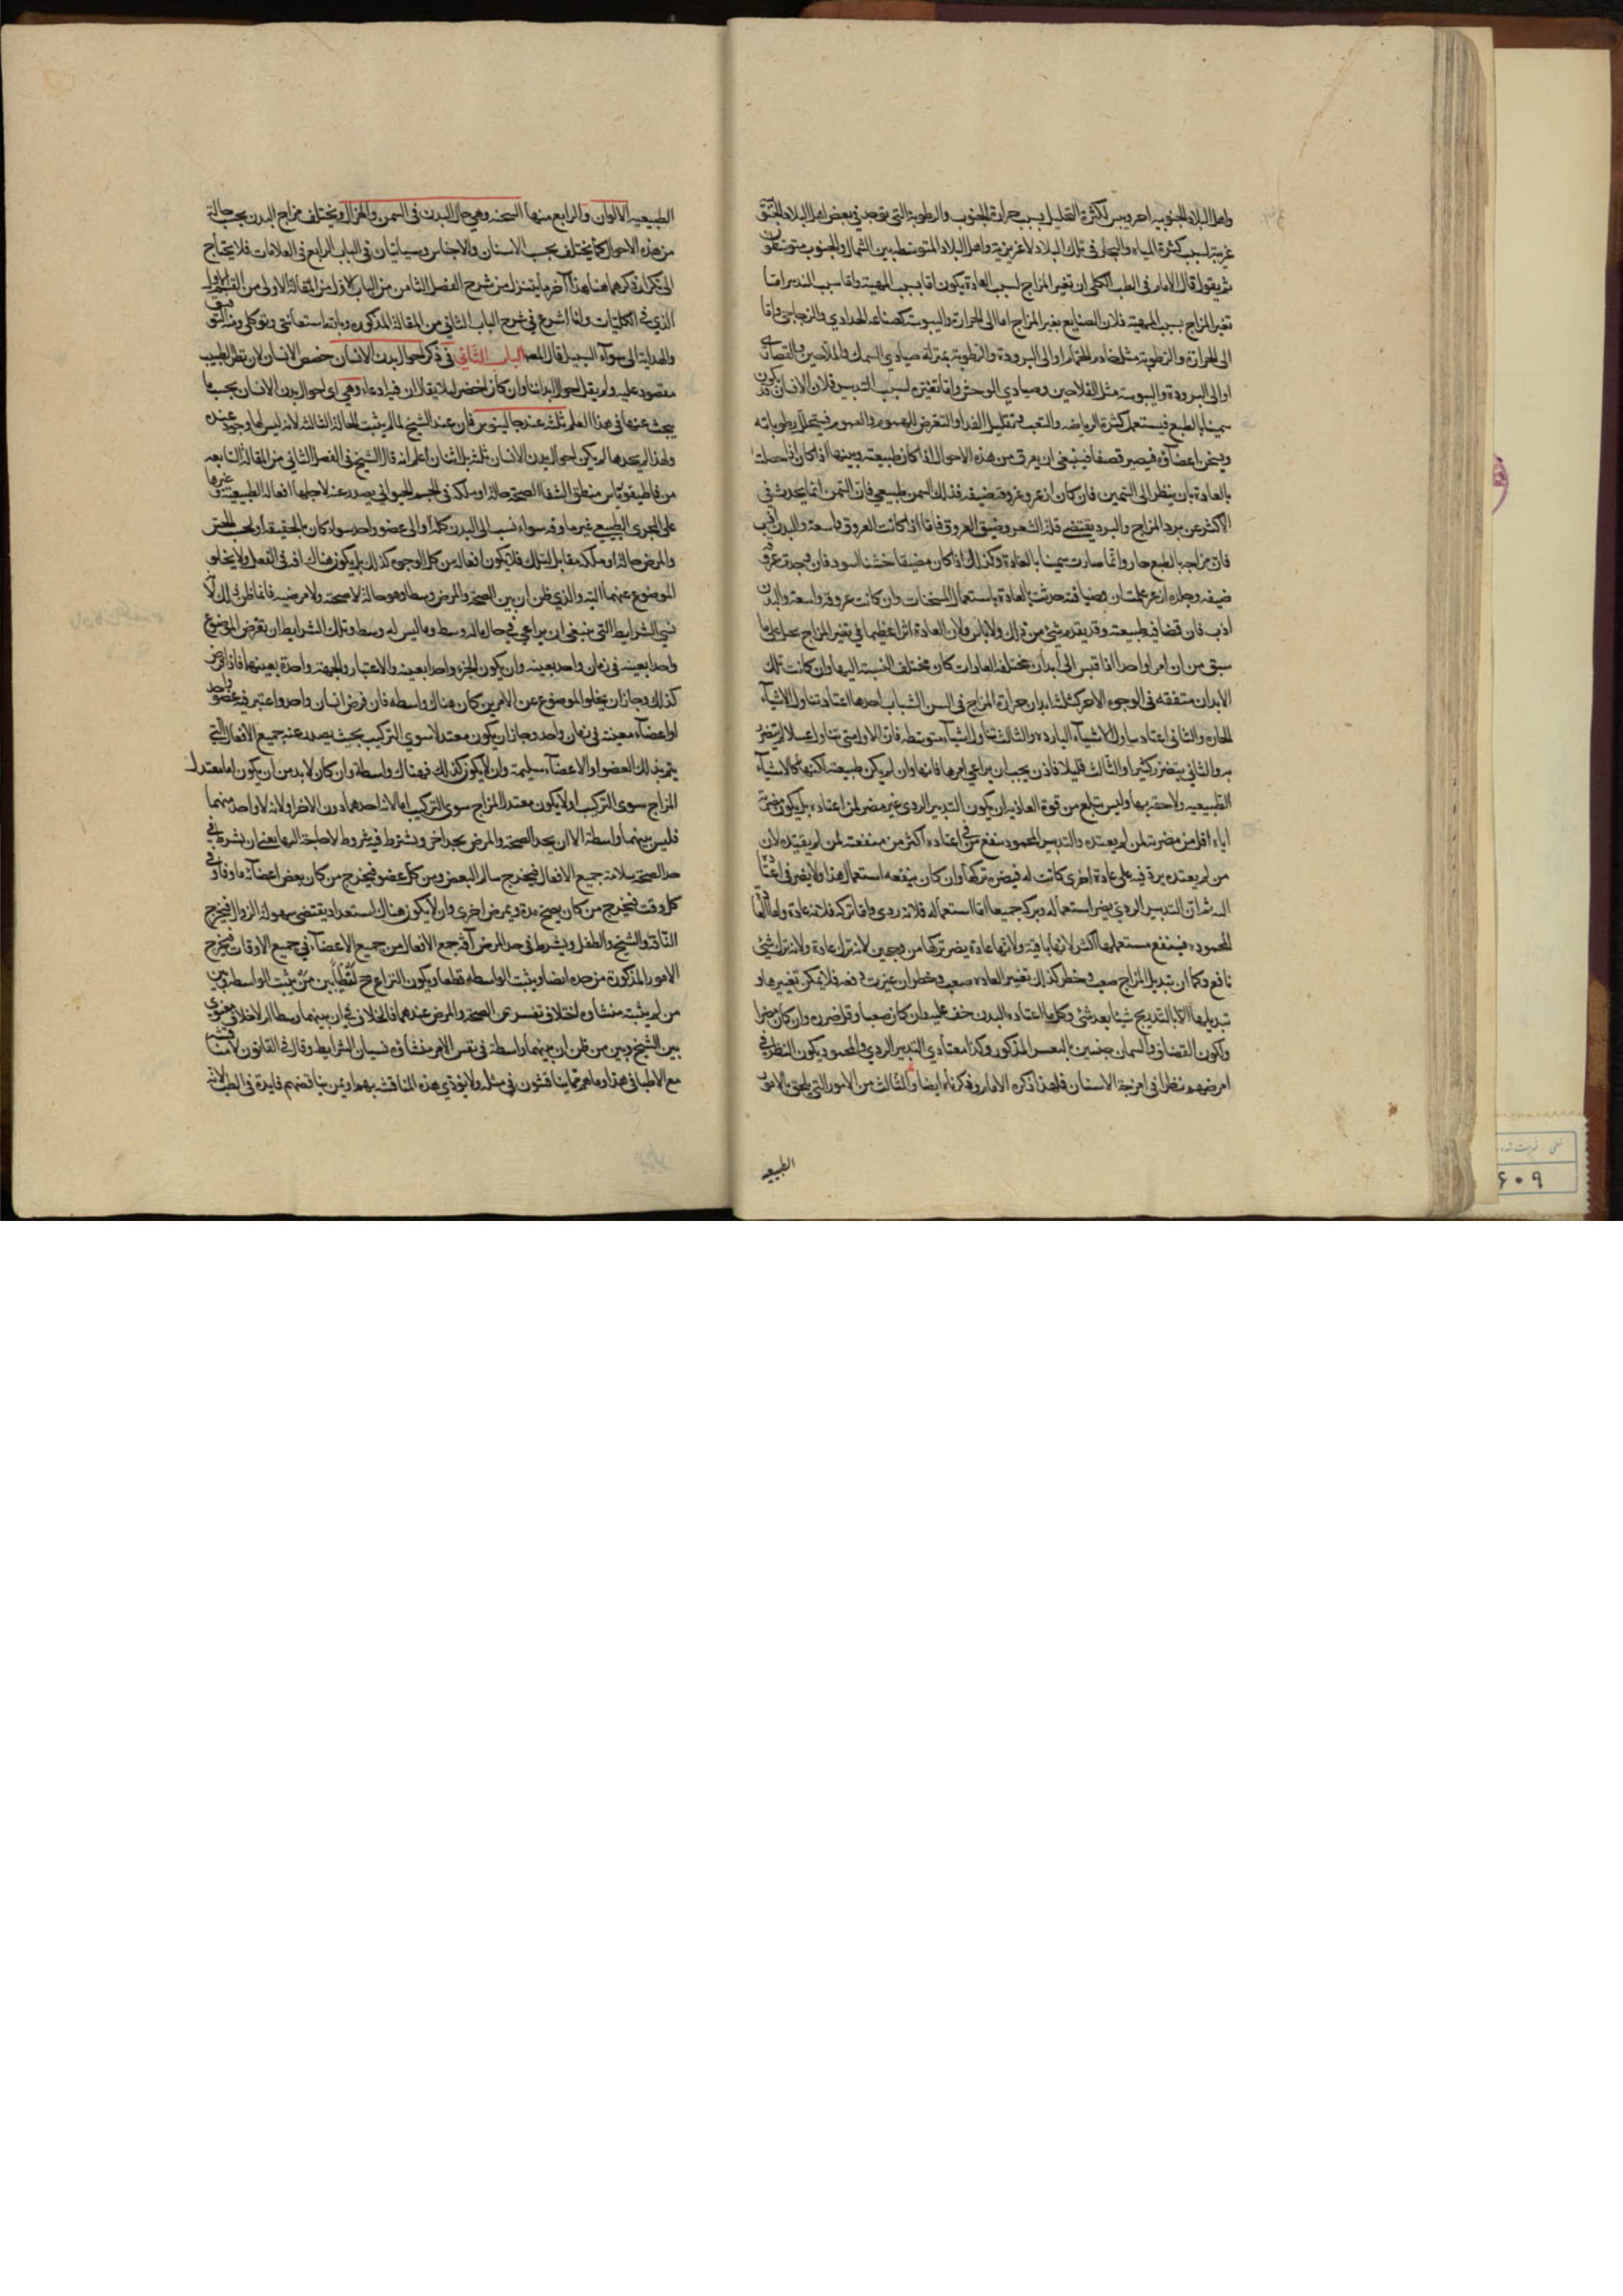 واهل البلاد الجنوبيه احر ويبس لكثرة التحليل بسبب حرارة الجنوب والرطوبة التى توجد في بعض اهل البلاد
غريبة لسبب كثرة المياه والبحار في تلك البلاد لا غريزية واهل البلاد المتوسط بين الشمال والجنوب متوسطون
ثم يقول قال الامام في الطب الكلى ان تغير المزاج لسبب العادة يكون اما بسبب المهنة واما بسبب التدبير اما
تغير المزاج بسبب المهنة فلان الصنايع يغير المزاج اما الى الحرارة واليبوسة كصناعة الحدادي والزجاجي واما
الى الحرارة والرطوبة مثل خادم الحمام او الى البرودة والرطوبة بمنزلة صيادي السمك والملاحين والقصارين
او الى البرودة واليبوسة مثل الفلاحين وصيادي الوحش واما تغيره لسبب التدبير فلان الانسان قد يكون
سمينا بالطبع فيستعمل كثرة الرياضه والتعب وتقليل الغذا والتعرض للهموم والسموم فيتحلل رطوباته
ويسخن اعضاؤه فيصير قصفا فينبغي ان يعرف من هذه الاحوال اذا كان طبيعته وبينها اذا كان انما حصلت
بالعادة بان ينظر الى السمين فان كان ازعر وعروقه ضيقه فذلك السمن طبيعي فان السمن انما يحدث في
الاكثر عن برد المزاج والبرد يقتضي قلة الشعر وضيق العروق فاما اذا كانت العروق واسعة والبدن ازب
فان مزاجه بالطبع حار وانما صارت سمينا بالعادة وكذلك اذا كان خشنا اسود فان وجدت عروقه
ضيقه وجلده ازعر علمت ان قضافته حدثت بالعادة باستعمال المسخنات وان كانت عروقه واسعة والبدن
ازب فان قضافته طبيعته وقد يقدم شئ من ذلك ولا باس ولان العادة اثرا عظيما في تغير المزاج على ما
سبق من ان امرا واحدا اذا قيس الى ابدان مختلفة العادات كان مختلف النسبة اليها وان كانت تلك
الابدان متفقه في الوجوه الاخر كثلثة ابدان حرارة المزاج في السن الشباب احدها اعتاد تناول الاشياء
الحاره والثاني اعتاد تناول الاشياء البارده والثالث تناول اشياء متوسطه فان الاول متى تناول عسلا لم يتضرر
به والثاني يتضرر كثيرا والثالث قليلا فاذن يجب ان يراعي امرها فانها وان لم يكن طبيعته لكنها كالاشياء
الطبيعيه ولاحقة بها وليس تبلغ من قوة العادة ان يكون التدبير الردي غير مضر لمن اعتاده بل يكون مضرته
اياه اقل من مضرته لمن لم يعتده والتدبير المحمود منفع من اعتاده اكثر من منفعته لمن لم يعتده لان
من لم يعتده يرد فيه على عادة اخرى كانت له فيضره تركها وان كان ينفعه استعمال هذا ولا يضر في اعتاده
التدبير الردي يضر استعماله وتركه جميعا اما استعماله فلانه ردي واما تركه فلانه عادة واما العادة
المحموده فينتفع مستعملها اكثر لانها باقية ولانها عادة يضر تركها من وجهين لانه ترك عادة ولانه ترك شئ
نافع وكما ان تبديل المزاج صعب وخطر كذلك تغيير العادة صعب وخطر ان غيرت دفعه فلا يمكن تغييرها و
تبديلها الا بالتدريج شيئا بعد شئ وكل ما اعتاده البدن خف عليه وان كان صعبا وقل ضرره وان كان مضرا
ولكون القضاف والسمان جنسين بالمعسر المذكور وكذا معتادي التدبير الردي والمحمود يكون النظر في
امزجتهم نظرا في امزجة الاسنان فلهذا ذكره الامام وذكرناه ايضا والثالث من الامور التي يلحق بالامور
الطبيعه
الطبيعيه الالوان والرابع منها السحنه وهي حال البدن في السمن والهزال ويختلف مزاج البدن بحسب حالة
من هذه الاحوال كما يختلف بحسب الاسنان والاجناس وسياتيان في الباب الرابع في العلامات فلا يحتاج
الى تكرار ذكرهما هنا هذا آخر ما يتنزل من شرح الفصل الثامن من الباب الاول من المقالة الاولى من القسم الاول
الذي في الكليات وانا اشرع في شرح الباب الثاني من المقالة المذكوره وبالله استعانتي وتوكلي ومنه التوفيق
والهداية الى سوآء السبيل قال المص الباب الثاني في ذكر احوال بدن الانسان خصص الانسان لان نظر الطبيب
مقصود عليه ولم يقل احوال ابداننا وان كان اخصر لئلا يقال ان فيه ادعاء وهي اى احوال بدن الانسان بحسب ما
يبحث عنها في هذا العلم ثلثه عند جالينوس فان عند الشيخ لما لم يثبت الحالة الثالثه لانه ليس لها وجود عنده
ولهذا لم يحدها لم يكن احوال بدن الانسان ثلثه بل اثنان اعلم انه قال الشيخ في الفصل الثاني من المقالة السابعه
من قاطيغورياس منطق الشفا الصحة حالة او ملكه في الجسم الحيواني يصدر عنه لاجلها افعاله الطبيعية وغيرها
على المجرى الطبيعي غير ماوفه سواء نسب الى البدن كله او الى عضو واحد سواء كان بالحقيقه او بحسب الحس
والمرض حالة او ملكه مقابل لتلك فلا يكون افعاله من كل الوجوه كذلك بل يكون هناك افه في الفعل ولا يخلو
الموضوع عنهما البته والذي ظن ان بين الصحة والمرض وسطا وهو حالة لا صحته ولا مرضيه فانما ظن ذلك لانه
نسي الشرايط التى ينبغي ان يراعي في حال ماله وسط وما ليس له وسط وتلك الشرايط ان تفرض الموضوع
واحدا بعينه في زمان واحد بعينه وان يكون الجزء واحدا بعينه والاعتبار والجهة واحدة بعينهما فاذا فرض
كذلك وجاز ان يخلو الموضوع عن الامرين كان هناك واسطه فان فرض انسان واحد واعتبر فيه عضو واحد
او اعضآء معينة في زمان واحد وجاز ان يكون معتدلا سوي التركيب بحيث يصدر عنه جميع الافعال التي
يتم بذلك العضو او الاعضآء سليمة وان لا يكون كذلك فهناك واسطة وان كان لا بد من ان يكون اما معتدل
المزاج سوى التركيب او لا يكون معتدل المزاج سوى التركيب اما لانه احدهما دون الاخر او لانه لا واحد منهما
فليس بينهما واسطة الا ان يحد الصحة والمرض بحد اخر ويشترط فيه شروط لا حاجة اليها يعني ان يشترط في
حد الصحة سلامة جميع الافعال فيخرج سالم البعض ومن كل عضو فيخرج من كان بعض اعضائه ماوفا وفي
كل وقت فيخرج من كان يصح مدة ويمرض اخرى وان لا يكون هناك استعداد يقتضي سهولة الزوال فيخرج
الناقه والشيخ والطفل ويشترط في حد المرض آفة جمع الافعال من جميع الاعضآء في جميع الاوقات فيخرج
الامور المذكورة من حده ايضا ويثبت الواسطه قطعا ويكون النزاع ح لفظيا بين من يثبت الواسطه وبين
من لم يثبته منشاؤه اختلاف تفسيري الصحة والمرض عندهما فالخلاف في ان بينهما وسطا ام لا خلاف معنوي
بين الشيخ وبين من ظن ان بينهما واسطة في نفس الامر منشاؤه نسيان الشرايط وقال في القانون لا مناقشه
مع الاطبا في هذا وما هم ممن يناقشون في مثله ولا يؤدي هذه المناقشه بهم او بمن يناقضهم فايدة في الطب لانه
۶۰۹